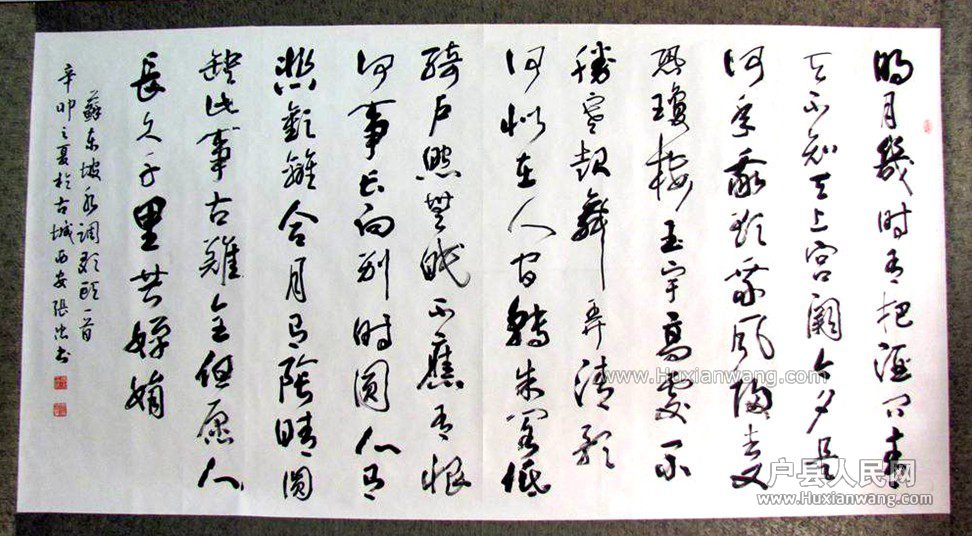 明月幾时有把酒问青
天不知天上宫阙今夕是
何年我欲乘风归去又
恐瓊楼玉宇高處不
勝寒起舞弄清影
何似在人间轉朱阁低
绮户照無眠不應有恨
何事长向别时圆人有
悲歡離合月有陰晴圆
缺此事古難全但愿人
長久千里共嬋娟
蘇东坡水调歌頭一首
辛卯之夏於古城西安张书
www.Huxianwang.com
户县人民网
www.Huxianwang.com